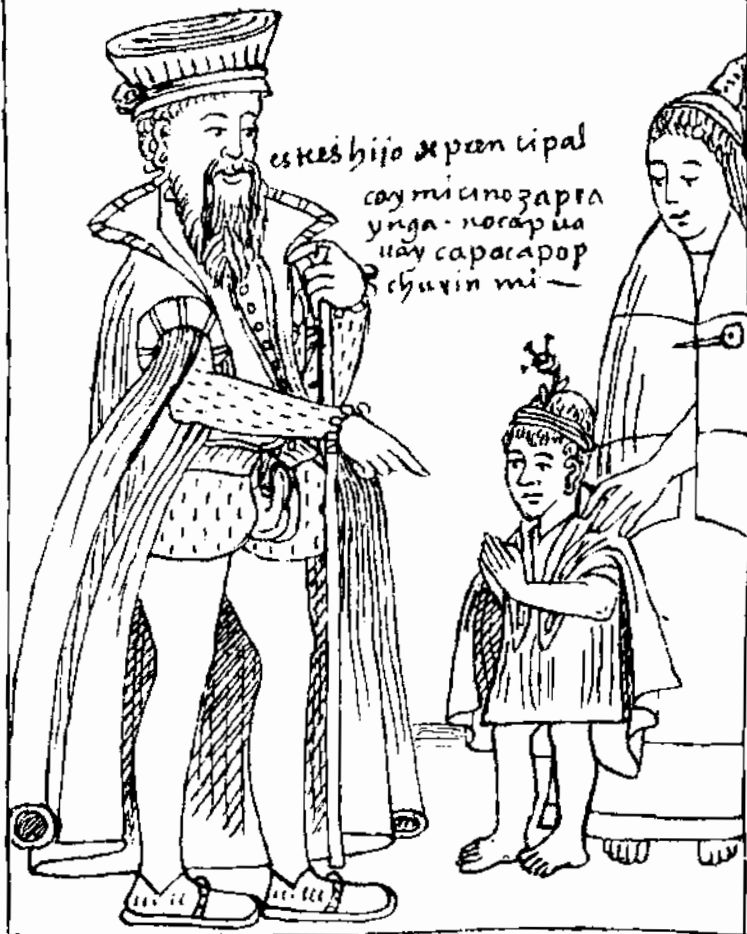 estees hijo de prencipal
cay mi
ynga - nocap ua
uay capac apop
churin mi —